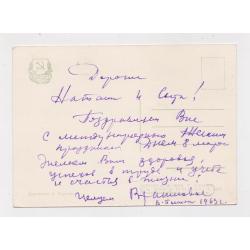 Дорогие
Наташа и Света!
Поздравляем Вас
с международным Женским
праздником Днем 8 марта
Желаем Вам здоровья,
успехов в труде и учебе
и счастья в жизни!
Целуем
1963 г.